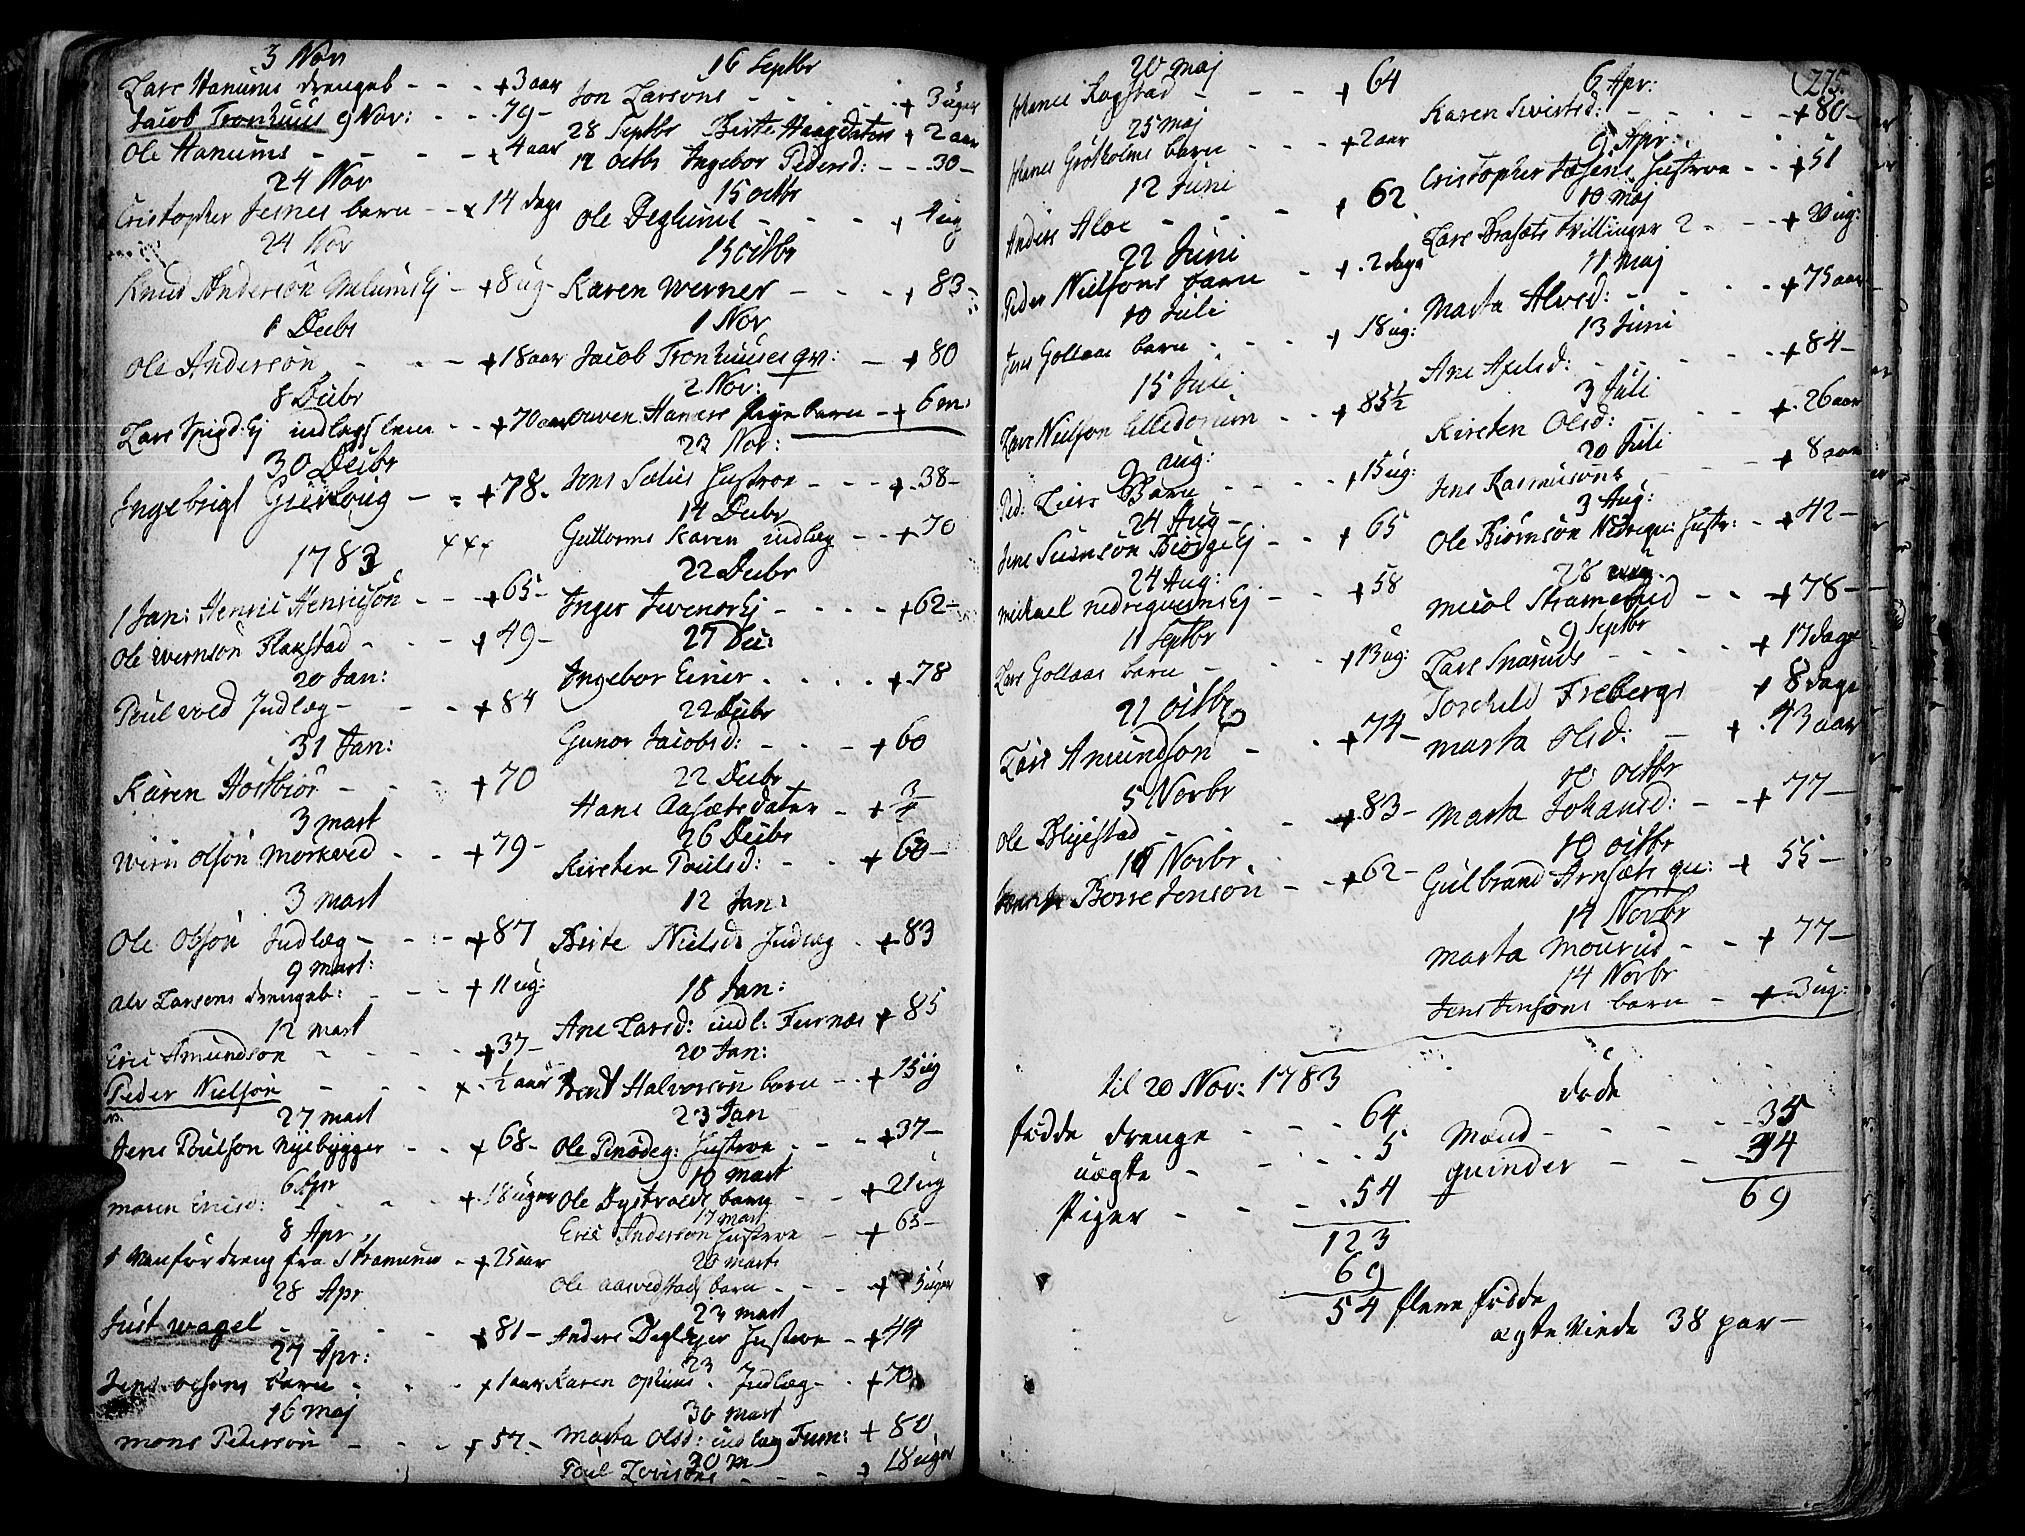 3 Nov
Lars Hanums drengeb - - - + 3 aar
Jacob Tronhuus 9 Nov: - - - 79 -
Ole Hanums - - - - + 4 aar
24 Nov
Cristopher Jesnes barn - - + 14 dage
24 Nov
Knud Anderson Melums Ej - + 8 ug -
1 Decbr
Ole Anderson - - - + 18 aar
8 Decbr
Lars Spigd: Ej indlagslem - - + 70 aar
30 Decbr
Ingebrigt Gierlovig - - + 78 -
1783 xxx
1 Jan: Henric Henricson - - + 65 -
Ole Evenson Flakstad - - - + 49 -
20 Jan:
Poul vold Indlæg - - - + 84
31 Jan:
Karen Hostbiør - - - + 70
3 mart
Even Olson Morkved - - + 79 -
3 mart
Ole Olson Indlæg - - - + 87
9 mart:
Ole Larsons drengeb: - - - + 11 ug:
12 mart
Eric Amundson - - - - + 37 -
Peder Nielson - - - + ½ aar
27 mart
Jens Poulson Nyebygger - - + 68 -
6 Apr
maren Ericsd: - - - + 18 uger
8 Apr
1 vanför dreng fra Stramerud - + 25 aar
28 Apr
Just wagel - - - - + 81 -
27 Apr:
Jens olsons barn - - - + 1 aar
16 maj
mons Pederson - - - + 57 -
16 Septbr
Jon Larsons - - - - + 3 uger
28 Septbr Birte Haagdaten + 2 aar
12 octbr Ingebor Pedersd: - - 30 -
15 octbr
Ole Deglums - - - - + 4 ug
15 octbr
Karen werner - - - - + 83 -
1 Nov
Jacob Tronhuuses qv: - + 80
2 Nov:
Hanses Pigebarn - + 6 m:
22 Nov:
Jons Sælies Hustroe - - - + 38 -
14 Decbr
Guttorms Karen indlæg - - + 70
22 Decbr
Inger Ivensøej - - - - + 62 -
27 Dec:
Ingebor Eirier - - - - + 78
22 Decbr
Gunor Jacobsd: - - - + 60
22 Decbr
Hans Aasætsdater - + ¾
26 Decbr
Kirsten Poulsd: - - + 60 -
12 Jan:
Birte Nielsd: Indlæg - + 83
18 Jan:
Ane Larsd: indl: Furnæs + 85
20 Jan:
Bent Halvorson barn - - + 15 ug
23 Jan
Ole Penodeg: Hustroe - - - + 37 -
10 mart
Ole Dystvolds barn - - + 21 ug
17 mart
Eric Anderson Hustroe - + 63 -
20 mart:
Ole aasvedstads barn - - - + 3 uger
23 mart
Anders Deglejer Hustroe - + 44
23
Karen ophuus Indlæg - - + 70
30 mart
Marta Olsd: indlæg Furn: + 80
30 m
Poul Lovisens - - - + 18 uger
20 maj
Rogstad - - - + 64
25 maj
Grøtholms barn - - - + 2 aar
12 Juni
Anders Aloe - - - + 62
22 Juni
Peder Nielsons barn - + 2 dage
10 Juli
Jens Gollaas barn - - - + 18 ug:
15 Juli
Lars Nielson - - + 85½
9 aug:
Ped: Liers Barn - - - - + 15 ug:
24 Aug -
Jens Suenson Biørge Ej - - + 65
24 Aug:
michael nedregueens Ej - - + 58
11 Septbr
Lars Gollaas barn - - - + 13 ug:
21 octbr
Lars Amundson - - + 74 -
5 Novbr
Ole Blijestad - - - + 83 -
10 Novbr
Borre Jonson - - + 62 -
275
6 Apr:
Karen Sivertsd: - - - - + 80 -
9 Apr:
Cristopher Hustroe - - + 51
10 maj
Lars Brasæts tvillinger 2 - - + 20 ug:
11 maj
Marta Alvsd: - - - - + 75 aar
13 Juni
Ane Axelsd: - - - - + 84 -
3 Juli
Kirsten Olsd: - - + 26 aar
20 Juli
Jens Rasmusons - - + 8 aar
3 Aug:
Ole Biørnson Nedregu: Hustr: - + 42 -
28 aug
Nicol Stramerud - - + 78 -
9 Septbr
Lars Snaruds - - - - + 17 dage
Torchild Frebergs + 8 dage
Marta Olsd: - + 43 aar
10 octbr
Marta Johansd: - - + 77 -
10 octbr
Gulbrand Arnsæts qv: + 55 -
14 Novbr
Marta Mourud - - + 77 -
14 Novbr
Jens Jensons barn - + 3 ug:
til 20 Nov: 1783
fødde drenge - - - 64
uægte - - - 5
Piger - - - 54
123
69
54 flere fødde
døde
Mænd - - - - 35
qvinder - - - 34
69
ægte viede 38 par -